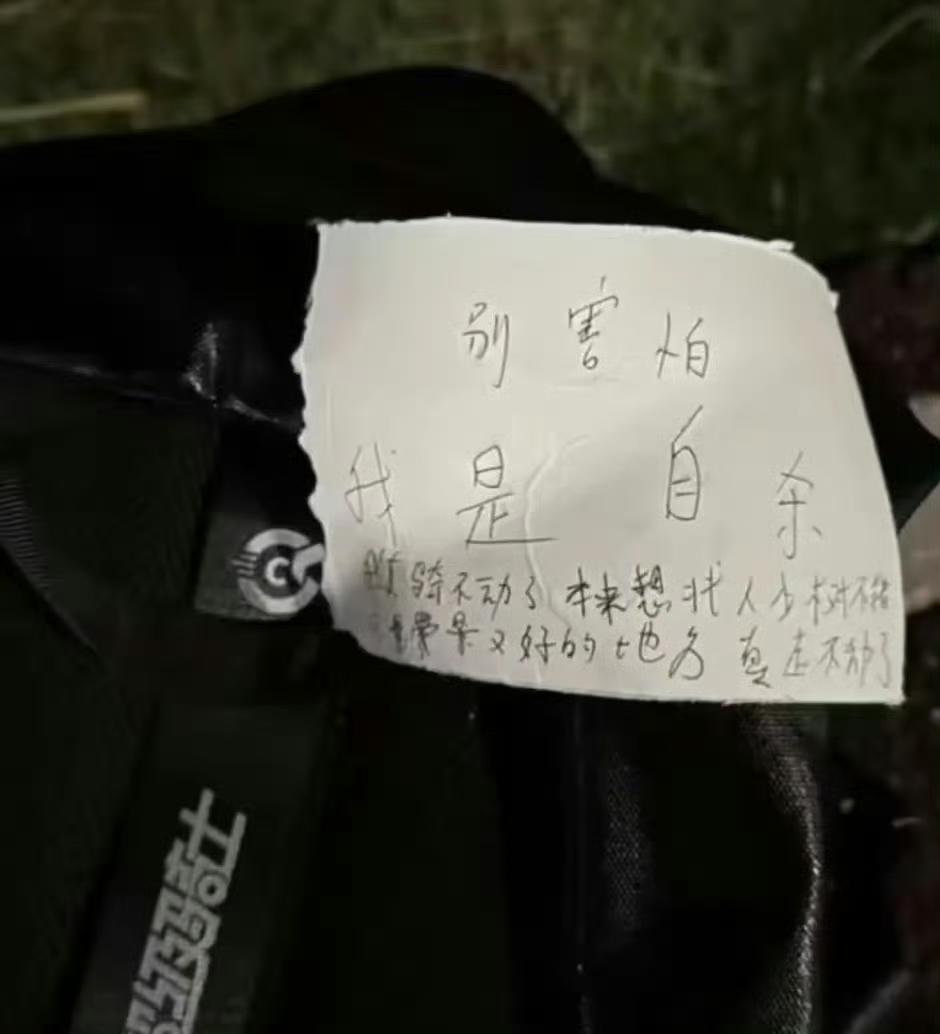 别害怕
我是自杀
骑不动了 本来想找人少树不错
景又好的地方 真走不动了